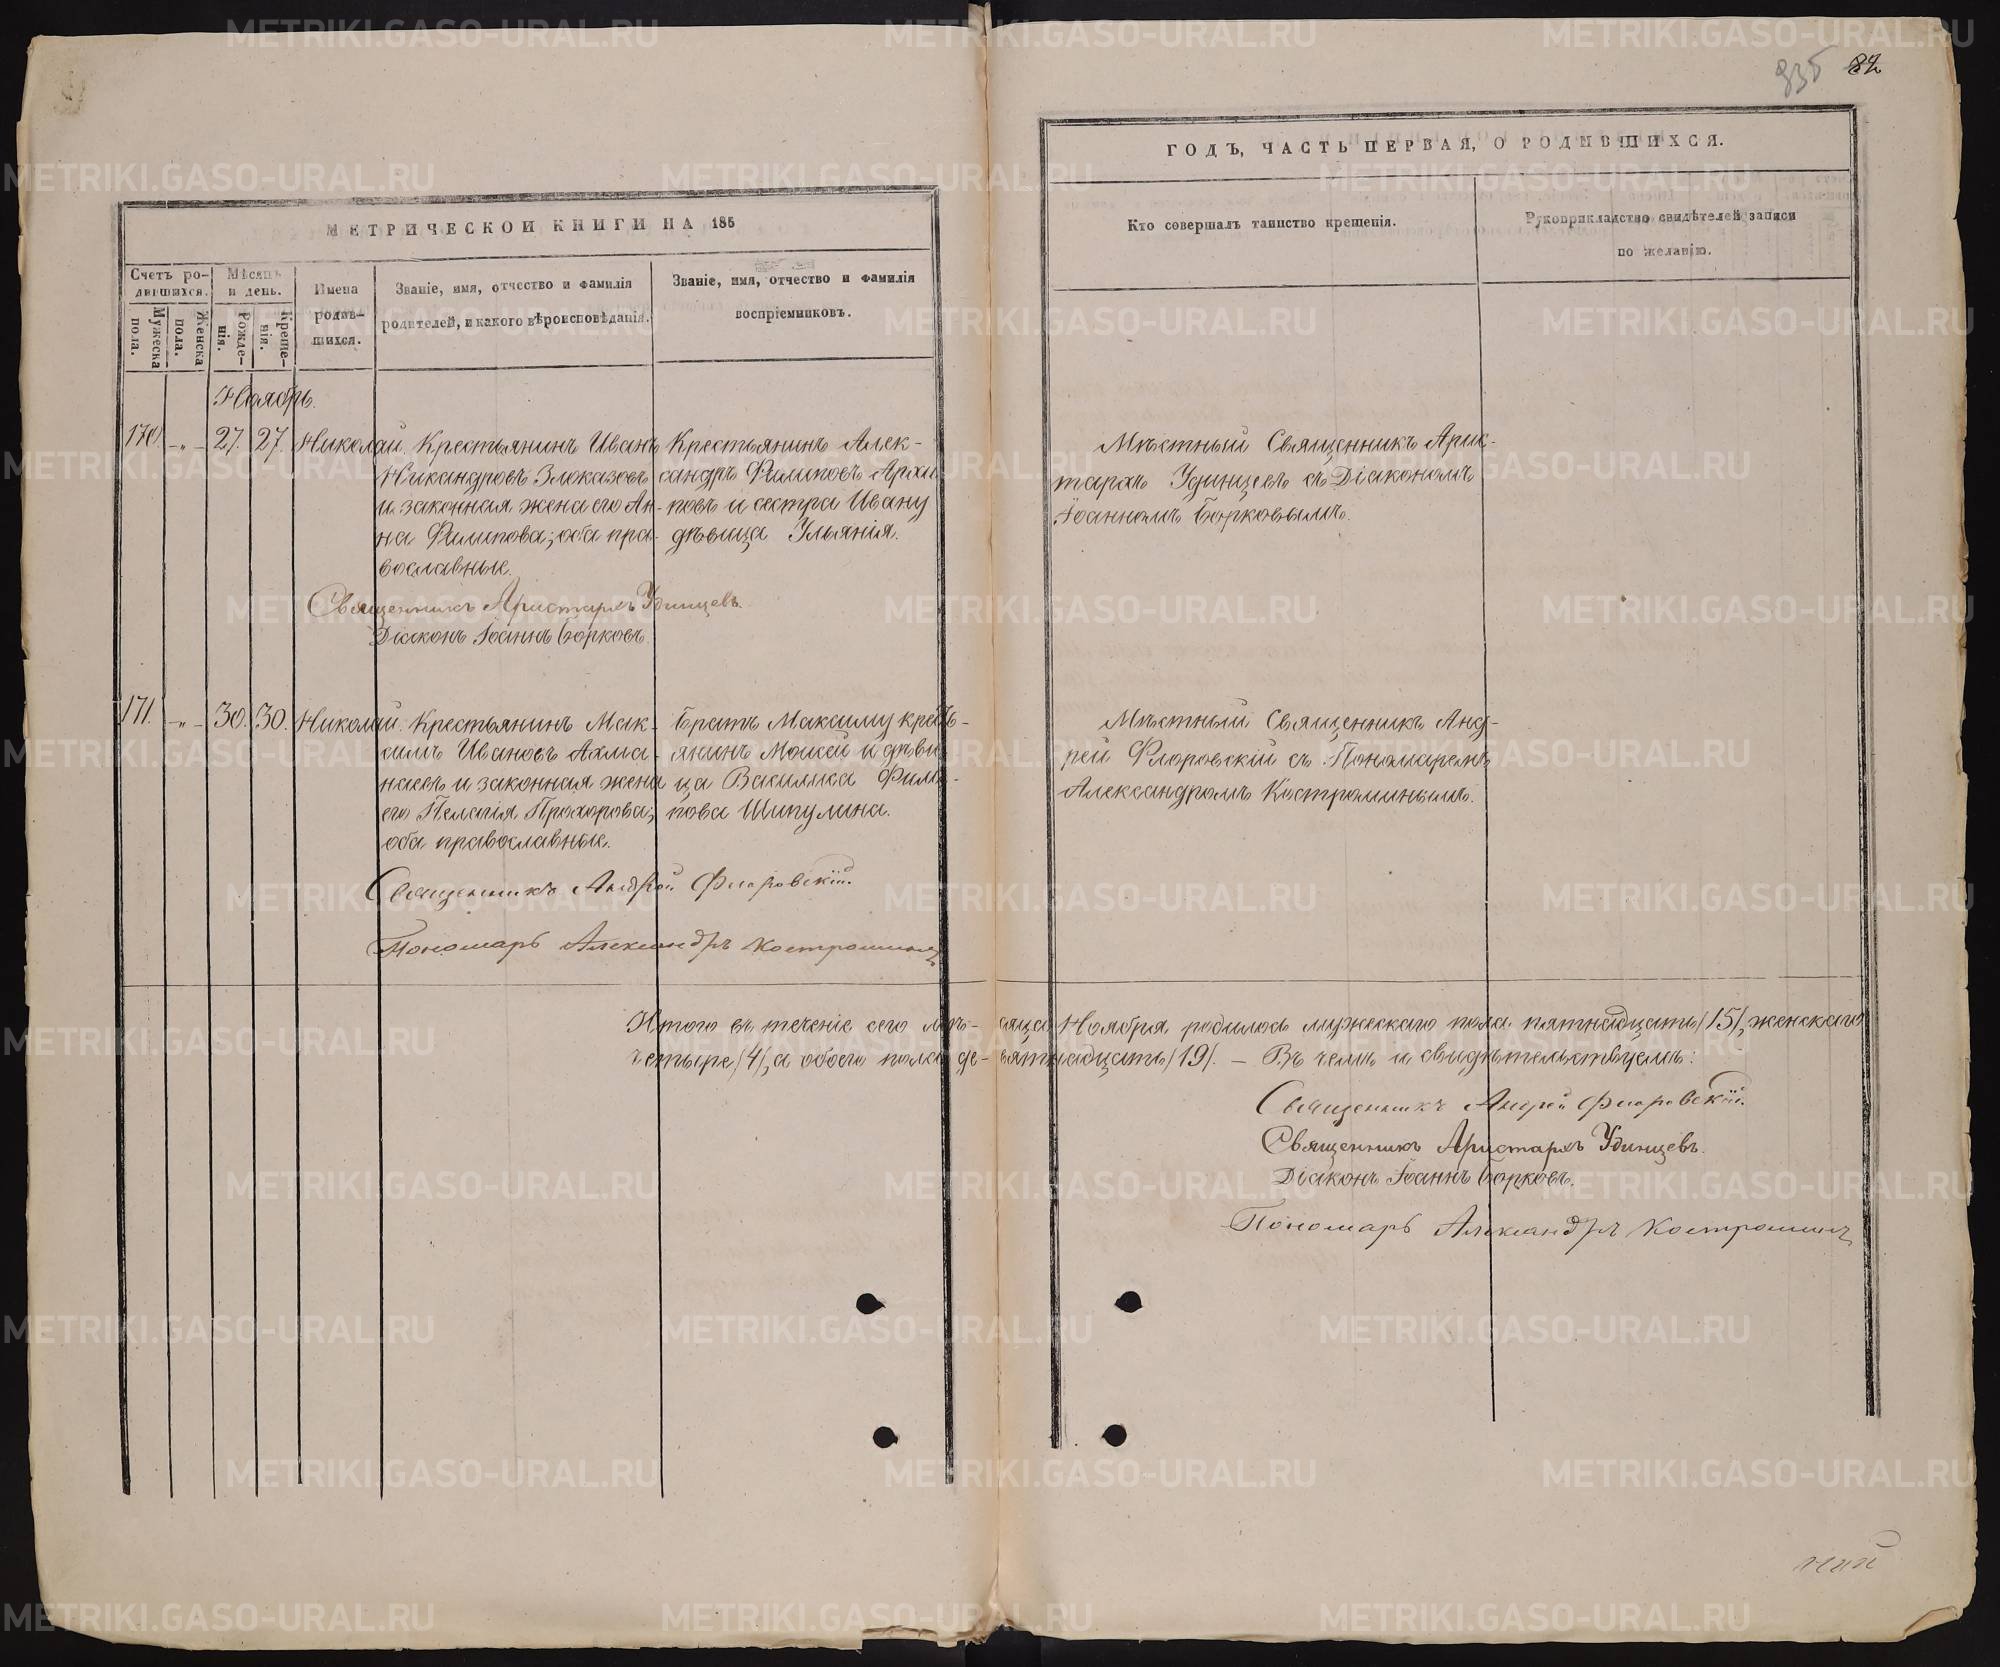 335 82
МЕТРИЧЕСКОЙ КНИГИ НА 185
Счетъ родившихся.
Мѣсяцъ и день.
Имена родившихся.
Званіе, имя, отчество и фамилія родителей, и какого вѣроисповѣданія.
Званіе, имя, отчество и фамилія воспріемниковъ.
Мужеска пола.
Женска пола.
Рожденія.
Крещенія.
Ноябрь.
170. „ 27. 27. Николай.
Крестьянинъ Иванъ
Никандровъ Злоказовъ
и законная жена его Ан-
на Филипова; оба пра-
вославные.
Крестьянинъ Алек-
сандръ Филиповъ Архи-
повъ и сестра Ивану
дѣвица Ульянія.
Священникъ Аристархъ Удинцевъ.
Діаконъ Іоаннъ Борковъ.
171. „ 30. 30. Николай.
Крестьянинъ Мак-
симъ Ивановъ Ахма-
наевъ и законная жена
его Пелагія Прохорова;
оба православные.
Братъ Максиму кресть-
янинъ Моисей и дѣви-
ца Василиса Фили-
пова Шипулина.
Священникъ Андрей Флоровскій.
Пономарь Александръ Костроминъ
ГОДЪ, ЧАСТЬ ПЕРВАЯ, О РОДИВШИХСЯ.
Кто совершалъ таинство крещенія.
Рукоприкладство свидѣтелей записи
по желанію.
Мѣстный Священникъ Арис-
тархъ Удинцевъ съ Діакономъ
Іоанномъ Борковымъ.
Мѣстный Священникъ Анд-
рей Флоровскій съ Пономаремъ
Александромъ Костроминымъ.
Итого въ теченіе сего мѣ-сяца Ноября родилось мужескаго пола пятнадцать /15/, женскаго
четыре /4/, а обоего пола де-вятнадцать /19/. — Въ чемъ и свидѣтельствуемъ:
Священникъ Андрей Флоровскій.
Священникъ Аристархъ Удинцевъ.
Діаконъ Іоаннъ Борковъ.
Пономарь Александръ Костроминъ
METRIKI.GASO-URAL.RU